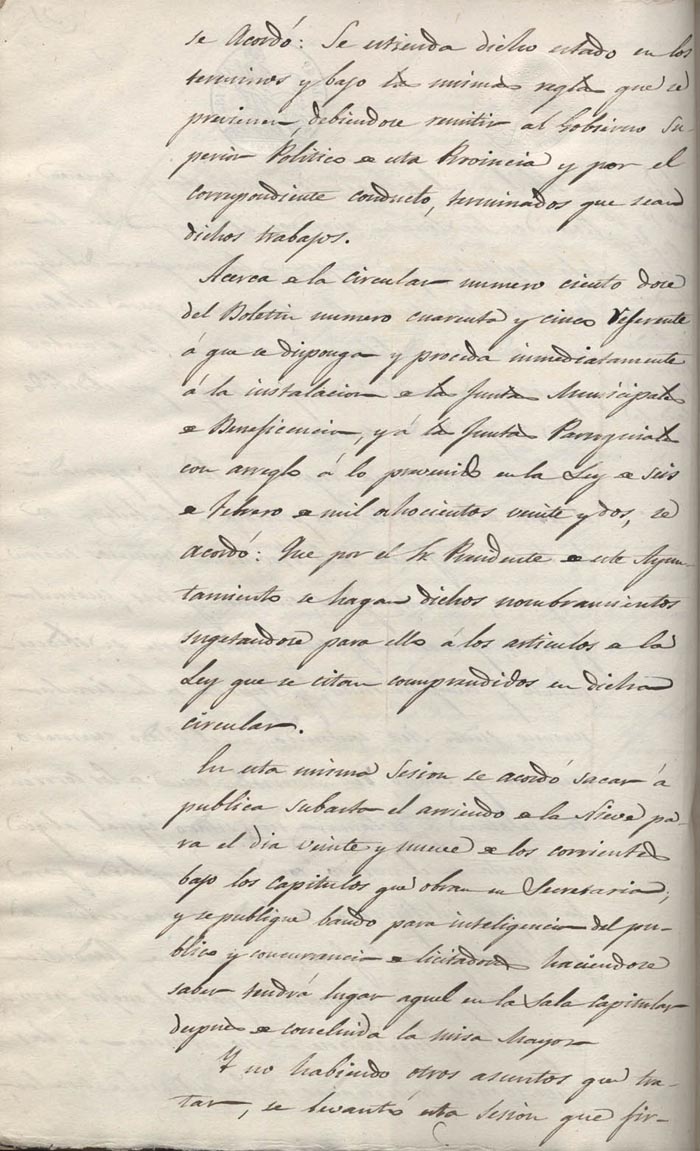 se Acordó: Se estienda dicho estado en los
terminos y bajo las mismas reglas que se
previenen, debiendose remitir al Gobierno Su-
perior Politico de esta Provincia y por el
correspondiente conducto, terminados que sean
dichos trabajos.
Acerca de la circular numero ciento doce
del Boletin numero cuarenta y cinco referente
á que se disponga y proceda inmediatamente
á la instalacion de las Juntas Municipales
de Beneficencia, y á las Juntas Parroquiales
con arreglo á lo prevenido en la Ley de seis
de Febrero de mil ochocientos veinte y dos, se
acordó: Que por el Sr Presidente de este Ayun-
tamiento se hagan dichos nombramientos
sugetandose para ello á los articulos de la
Ley que se citan comprendidos en dicha
circular.
En esta misma Sesion se acordó sacar á
publica subasta el arriendo de la Nieve pa-
ra el dia veinte y nueve de los corrientes
bajo los capitulos que obran en Secretaria,
y se publique bando para inteligencia del pu-
blico y concurrencia de licitadores haciendose
saber tendrá lugar aquel en la Sala Capitular
despues de concluida la misa Mayor
Y no habiendo otros asuntos que tra-
tar, se levantó esta Sesion que fir-